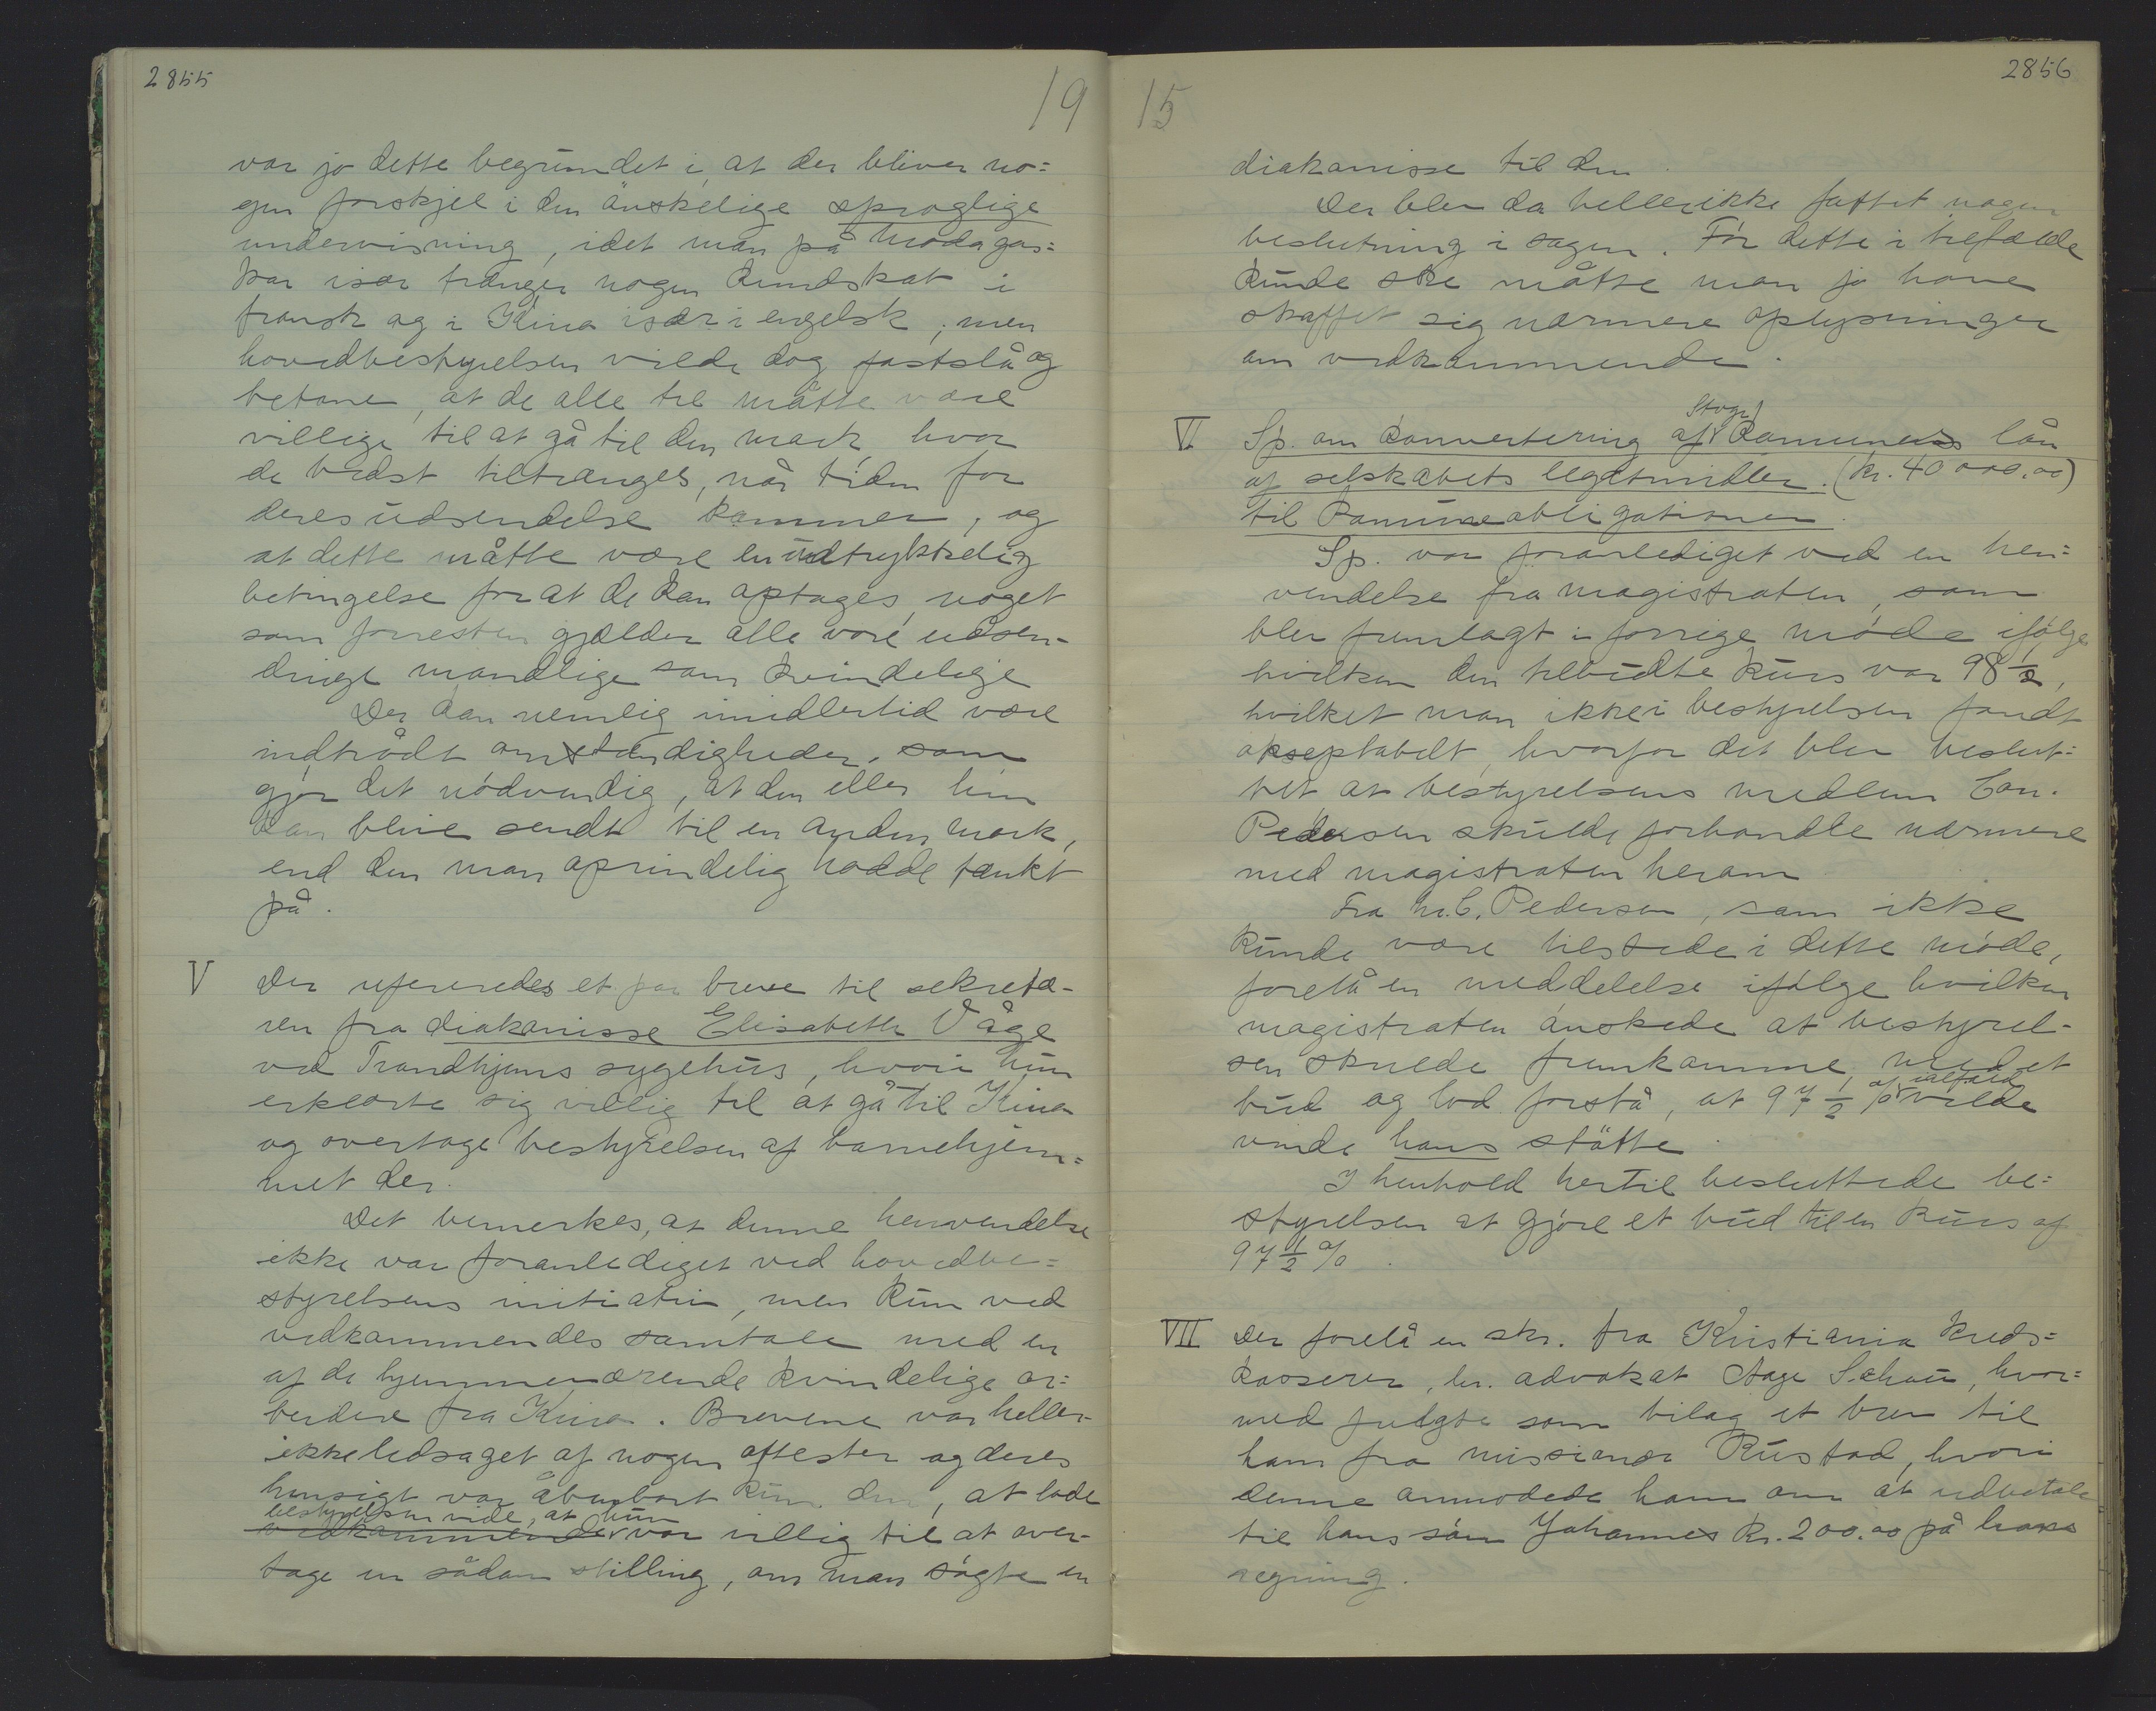 2855
19
var jo dette begrundet i, at der bliver no=
gen forskjel i den ønskelige sproglige
undervisning, idet man på Madagas=
kar især trænger nogen kundskab i
fransk og i Kina især i engelsk; men
hovedbestyrelsen vilde dog fastslå og
betone, at de alle til måtte være
villige til at gå til den mark, hvor
de bedst tiltrænges, når tiden for
deres udsendelse kommer, og
at dette måtte være en udtrykkelig
betingelse for at de kan optages, noget
som forresten gjælder alle vore udsen-
dinge mandlige som kvindelige
Der kan nemlig imidlertid være
indtrådt omstændigheder, som
gjør det nødvendig, at den eller hin
kan blive sendt til en anden mark,
end den man oprindelig hadde tænkt
på.
V Der refereredes et par breve til sekretæ-
ren fra diakonisse Elisabeth Våge
ved Trondhjems sygehus, hvori hun
erklærte sig villig til at gå til Kina
og overtage bestyrelsen af barnehjem=
met der.
Det bemerkes, at denne henvendelse
ikke var foranlediget ved hovedbe=
styrelsens initiativ, men kun ved
vedkommendes samtale med en
af de hjemmeværende kvindelige ar=
beidere fra Kina. Brevene var heller-
ikke ledsaget af nogen attester og deres
hensigt var åbenbart kun den, at lade
bestyrelsen vide, at hun
vedkommende var villig til at over-
tage en sådan stilling, om man søgte en
15
2856
diakonisse til den.
Der blev da heller ikke fattet nogen
beslutning i sagen. Før dette i tilfælde
kunde ske måtte man jo have
skaffet sig nærmere oplysninger
om vedkommende.
Stog
VI Sp. om konvertering af kommunens lån
af selskabets legatmidler. (kr. 40 000.00)
til kommuneobligationer.
Sp. var foranlediget ved en hen=
vendelse fra magistraten, som
blev fremlagt i forrige møde ifølge
hvilken den tilbudte kurs var 98 1/2,
hvilket man ikke i bestyrelsen fandt
akseptabelt, hvorfor det blev beslut=
tet at bestyrelsens medlem Con.
Pedersen skulde forhandle nærmere
med magistraten herom
Fra hr. C. Pedersen, som ikke
kunde være tilstede i dette møde,
forelå en meddelelse ifølge hvilken
magistraten ønskede at bestyrel-
sen skulde fremkomme med et
ialfald
bud og lod forstå, at 97 1/2 % vilde
vinde hans støtte.
I henhold hertil besluttede be=
styrelsen at gjøre et bud til en kurs af
97 1/2 %.
VII Der forelå en skr. fra Kristiania kreds=
kasserer, hr. advokat Aage Schou, hvor=
med fulgte som bilag et brev til
ham fra missionær Rustad, hvori
denne anmodede ham om at udbetale
til hans søn Johannes kr. 200.00 på hans
regning.